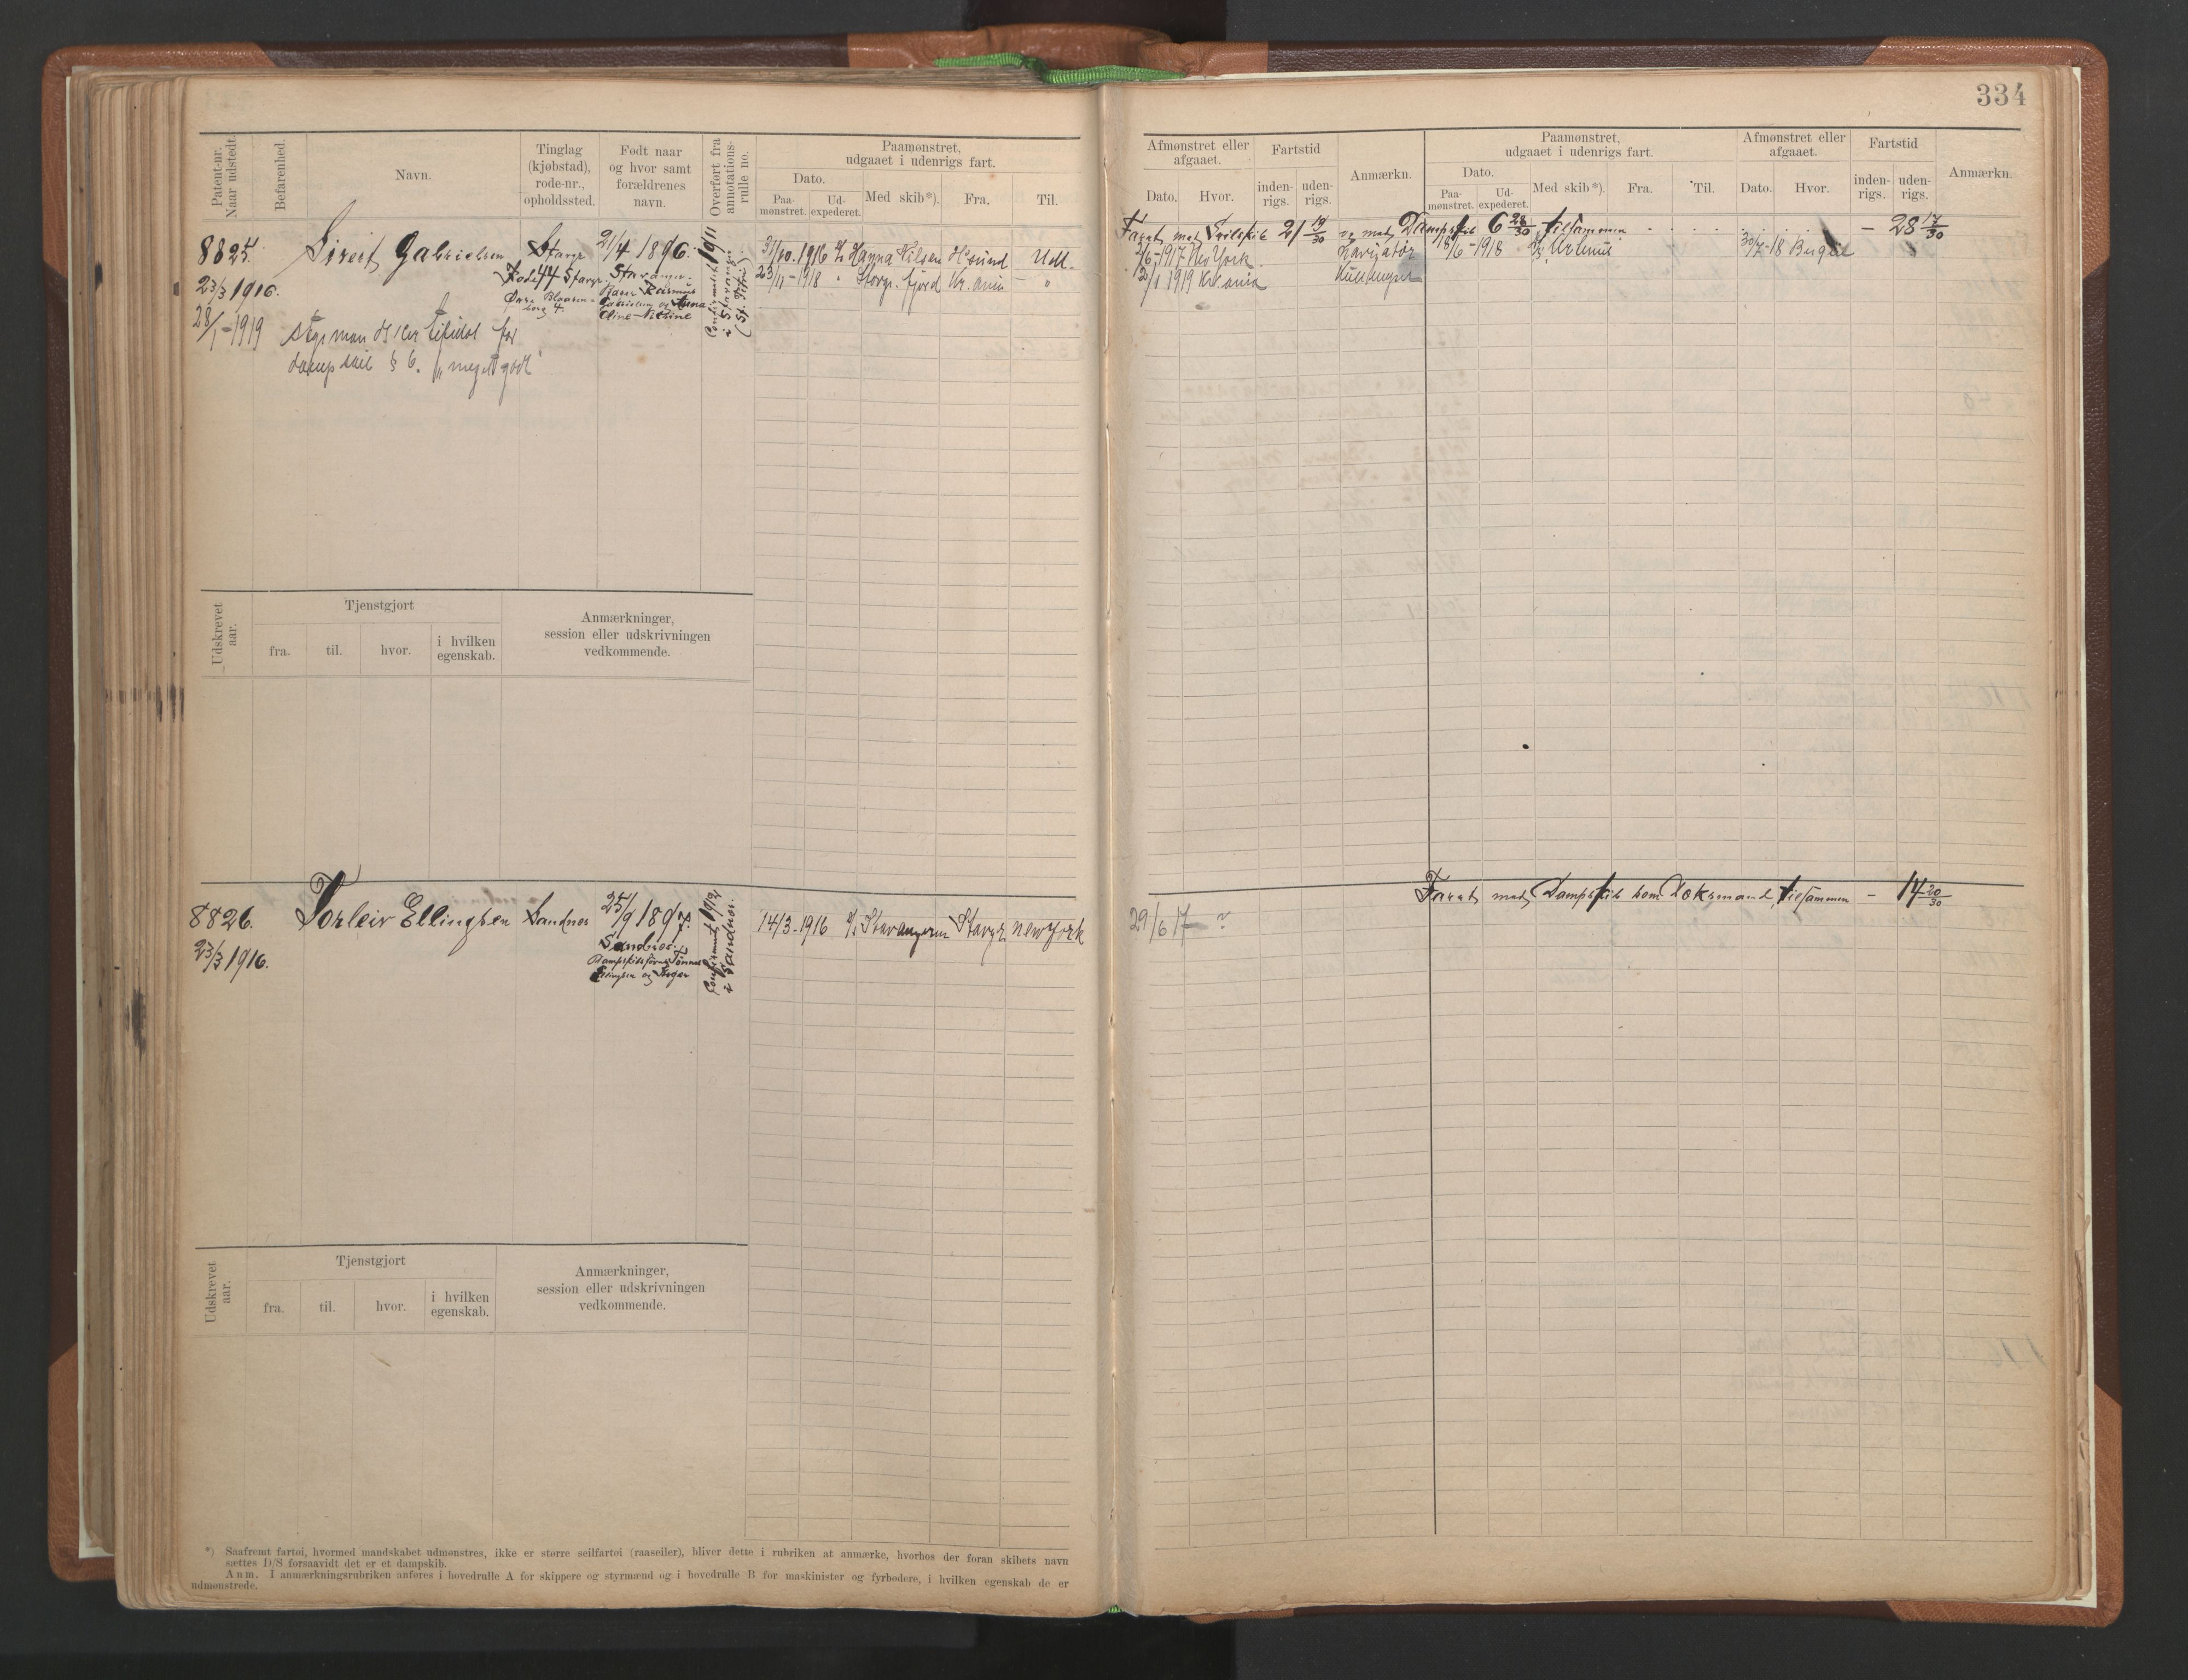 334
Patent-nr. Naar udstedt.
Befarenhed.
Navn.
Tinglag (kjøbstad), rode-nr., opholdssted.
Født naar og hvor samt forældrenes navn.
Overført fra annotations-rulle no.
Paamønstret, udgaaet i udenrigs fart.
Dato.
Paa-mønstret.
Ud-expederet.
Med skib*).
Fra.
Til.
Afmønstret eller afgaaet.
Dato.
Hvor.
Fartstid
inden-rigs.
uden-rigs.
Anmærkn.
Paamønstret, udgaaet i udenrigs fart.
Dato.
Paa-mønstret.
Ud-expederet.
Med skib*).
Fra.
Til.
Afmønstret eller afgaaet.
Dato.
Hvor.
Fartstid
inden-rigs.
uden-rigs.
Anmærkn.
Farat med Seilskib 21 19/30 og med Dampskib 6 28/30 tilsammen - 28 17/30
8825. Sivert Gabrielsen Stavgr 21/4 1896.
23/3 1916. Rode 44 Stavgr Stavanger.
28/1-1919
Gabrielsen og Anna
Oline
Confirmeret 1911 i Stavanger (St. Petri)
Styrman
dampskib § 6. "meget godt"
31/10. 1916 Hanna Nilsen H'sund Udl.
23/11-1918 " Stavgr. fjord Kr.ania - "
2/6-1917 New York
13/1 1919 Kr.ania
18/6-1918
30/7-18
Udskrevet aar.
Tjenstgjort
fra.
til.
hvor.
i hvilken egenskab.
Anmærkninger, session eller udskrivningen vedkommende.
Farat med Dampskib som Doksmand, tilsammen - 14 20/30
8826. Torleiv Ellingsen Sandnes 25/9 1897.
23/3 1916. Sandnes.
Dampskibsfører Tønnes
Ellingsen og Inger
Confirmeret 1912 i Sandnes.
14/3-1916 Stavangeren Stavgr. New York
29/6 17 ?
Udskrevet aar.
Tjenstgjort
fra.
til.
hvor.
i hvilken egenskab.
Anmærkninger, session eller udskrivningen vedkommende.
*) Saafremt fartøi, hvormed mandskabet udmønstres, ikke er større seilfartøi (raaseiler), bliver dette i rubriken at anmærke, hvorhos der foran skibets navn
sættes D/S forsaavidt det er et dampskib.
Anm. I anmærkningsrubriken anføres i hovedrulle A for skippere og styrmænd og i hovedrulle B for maskinister og fyrbødere, i hvilken egenskab de er
udmønstrede.